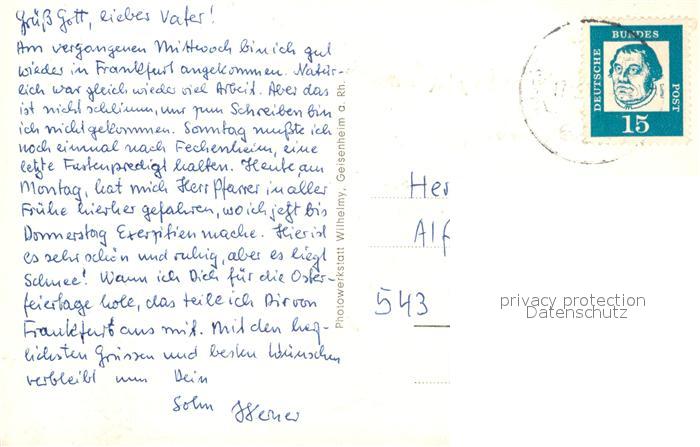 Grüß Gott, lieber Vater!
Am vergangenen Mittwoch bin ich gut
wieder in Frankfurt angekommen. Natür-
lich war gleich wieder viel Arbeit. Aber das
ist nicht schlimm, nur zum Schreiben bin
ich nicht gekommen. Sonntag mußte ich
noch einmal nach Fechenheim, eine
letzte Fastenpredigt halten. Heute, am
Montag, hat mich Herr Pfarrer in aller
Frühe hierher gefahren, wo ich jetzt bis
Donnerstag Exerzitien mache. Hier ist
es sehr schön und ruhig, aber es liegt
Schnee! Wann ich Dich für die Oster-
feiertage hole, das teile ich Dir von
Frankfurt aus mit. Mit den herz-
lichsten Grüssen und besten Wünschen
verbleibt nun Dein
Sohn Werner
Photowerkstatt Wilhelmy, Geisenheim a. Rh.
DEUTSCHE
BUNDES
POST
15
17
Her
Alf
543
privacy protection
Datenschutz